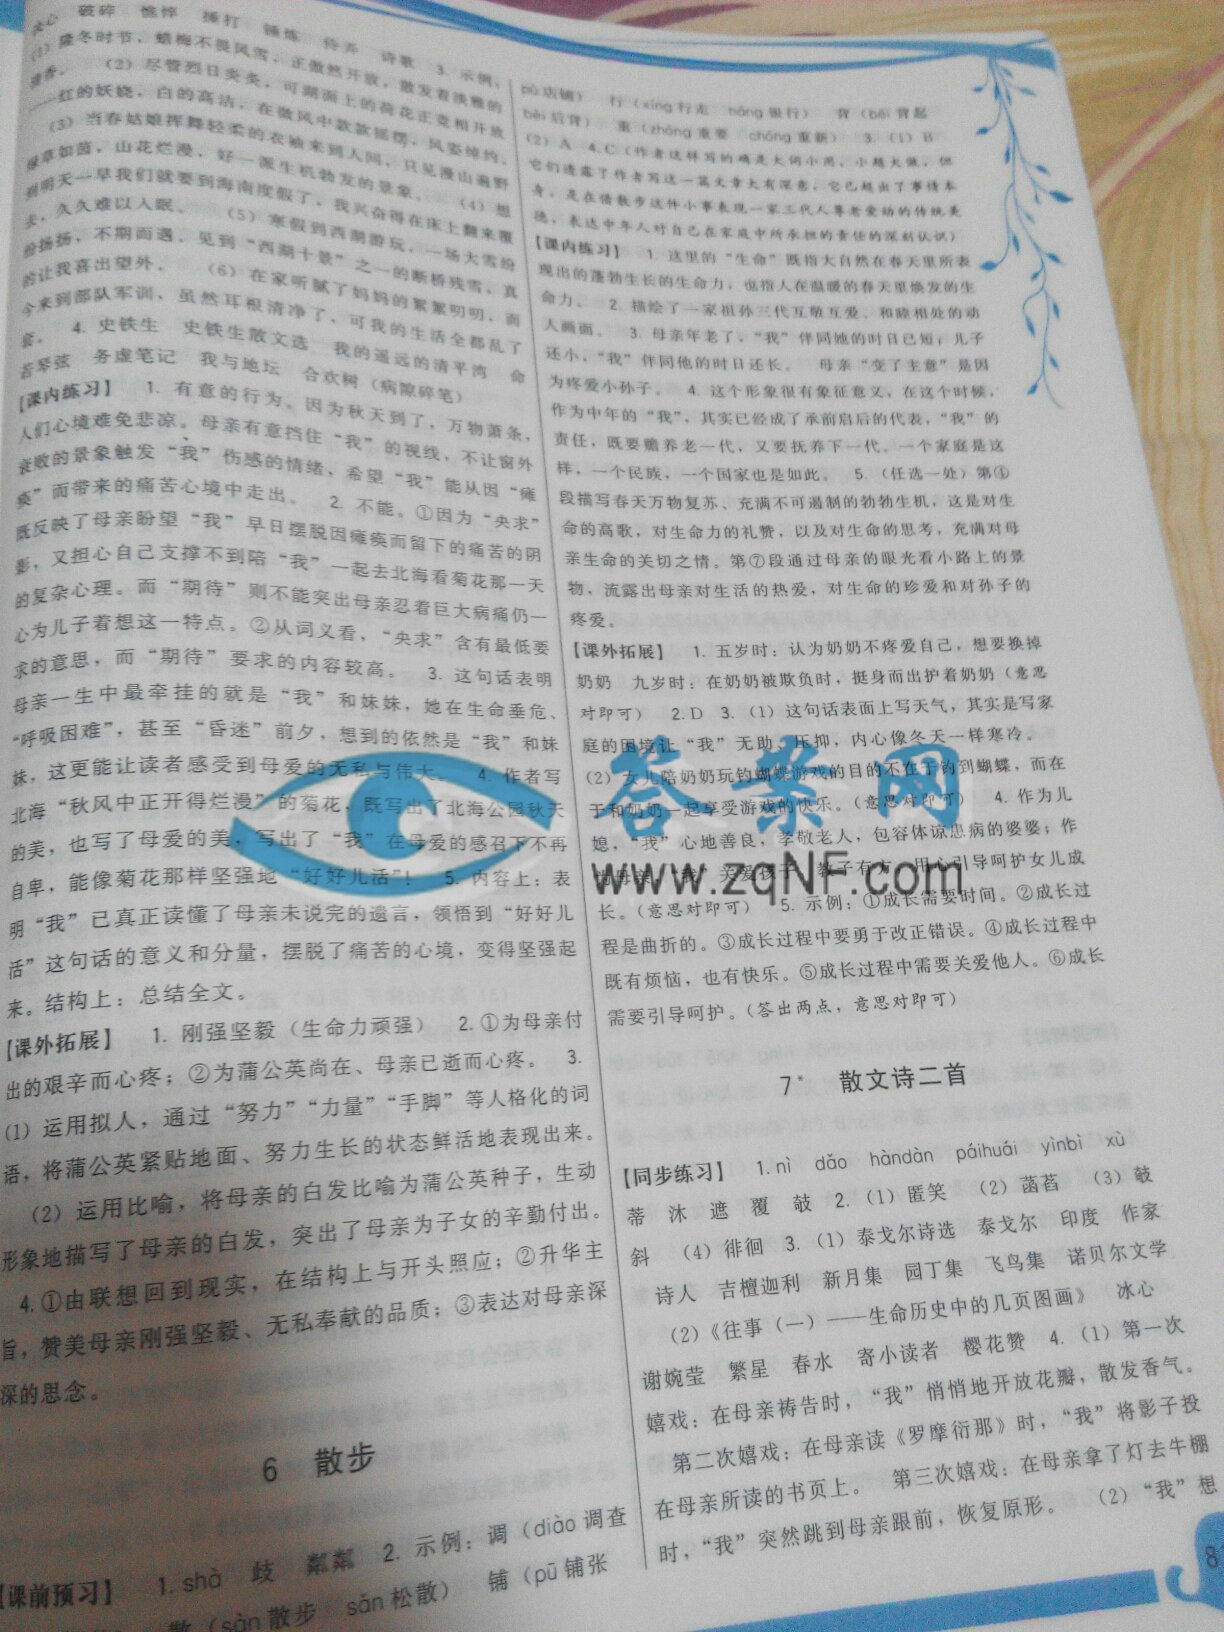 破碎 憔悴 捶打 锤炼 侍弄 诗歌 3. 示例:
(1)隆冬时节,蜡梅不畏风雪,正傲然开放,散发着淡雅的
清香。 (2)尽管烈日炎炎,可湖面上的荷花正竞相开放
——红的妖娆,白的高洁,在微风中款款摇摆,风姿绰约。
(3)当春姑娘挥舞轻柔的衣袖来到人间,只见漫山遍野
绿草如茵,山花烂漫,好一派生机勃发的景象。 (4)想
到明天一早我们就要到海南度假了,我兴奋得在床上翻来覆
去,久久难以入眠。 (5)寒假到西湖游玩,一场大雪纷
纷扬扬,不期而遇,见到“西湖十景”之一的断桥残雪,真
的让我喜出望外。 (6)在家听腻了妈妈的絮絮叨叨,而
今来到部队军训,虽然耳根清净了,可我的生活全都乱了
套。 4. 史铁生 史铁生散文选 我的遥远的清平湾 命
若琴弦 务虚笔记 我与地坛 合欢树(病隙碎笔)
【课内练习】 1. 有意的行为。因为秋天到了,万物萧条,
人们心境难免悲凉。母亲有意挡住“我”的视线,不让窗外
衰败的景象触发“我”伤感的情绪,希望“我”能从因“瘫
痪”而带来的痛苦心境中走出。 2. 不能。①因为“央求”
既反映了母亲盼望“我”早日摆脱因瘫痪而留下的痛苦的阴
影,又担心自己支撑不到陪“我”一起去北海看菊花那一天
的复杂心理。而“期待”则不能突出母亲忍着巨大病痛仍一
心为儿子着想这一特点。②从词义看,“央求”含有最低要
求的意思,而“期待”要求的内容较高。 3. 这句话表明
母亲一生中最牵挂的就是“我”和妹妹,她在生命垂危、
“呼吸困难”,甚至“昏迷”前夕,想到的依然是“我”和妹
妹,这更能让读者感受到母爱的无私与伟大。 4. 作者写
北海“秋风中正开得烂漫”的菊花,既写出了北海公园秋天
的美,也写了母爱的美,写出了“我”在母爱的感召下不再
自卑,能像菊花那样坚强地“好好儿活”! 5. 内容上:表
明“我”已真正读懂了母亲未说完的遗言,领悟到“好好儿
活”这句话的意义和分量,摆脱了痛苦的心境,变得坚强起
来。结构上:总结全文。
【课外拓展】 1. 刚强坚毅(生命力顽强) 2. ①为母亲付
出的艰辛而心疼;②为蒲公英尚在、母亲已逝而心疼。 3.
(1)运用拟人,通过“努力”“力量”“手脚”等人格化的词
语,将蒲公英紧贴地面、努力生长的状态鲜活地表现出来。
(2)运用比喻,将母亲的白发比喻为蒲公英种子,生动
形象地描写了母亲的白发,突出了母亲为子女的辛勤付出。
4. ①由联想回到现实,在结构上与开头照应;②升华主
旨,赞美母亲刚强坚毅、无私奉献的品质;③表达对母亲深
深的思念。
6 散步
【课前预习】 1. shà 歧 粼粼 2. 示例:调(diào 调查
散(sàn 散步 sǎn 松散) 铺(pū 铺张
pù 店铺) 行(xíng 行走 háng 银行) 背(bēi 背起
bèi 后背) 重(zhòng 重要 chóng 重新) 3. (1)B
(2)A 4. C(作者这样写的确是大词小用,小题大做,但
它们透露了作者写这一篇文章大有深意,它已超出了事情本
身,是在借散步这件小事表现一家三代人尊老爱幼的传统美
德,表达中年人对自己在家庭中所承担的责任的深刻认识)
【课内练习】 1. 这里的“生命”既指大自然在春天里所表
现出的蓬勃生长的生命力,也指人在温暖的春天里焕发的生
命力。 2. 描绘了一家祖孙三代互敬互爱、和睦相处的动
人画面。 3. 母亲年老了,“我”伴同她的时日已短;儿子
还小,“我”伴同他的时日还长。 母亲“变了主意”是因
为疼爱小孙子。 4. 这个形象很有象征意义,在这个时候,
作为中年的“我”,其实已经成了承前启后的代表,“我”的
责任,既要赡养老一代,又要抚养下一代。一个家庭是这
样,一个民族,一个国家也是如此。 5. (任选一处)第④
段描写春天万物复苏、充满不可遏制的勃勃生机,这是对生
命的高歌,对生命力的礼赞,以及对生命的思考,充满对母
亲生命的关切之情。第⑦段通过母亲的眼光看小路上的景
物,流露出母亲对生活的热爱,对生命的珍爱和对孙子的
疼爱。
【课外拓展】 1. 五岁时:认为奶奶不疼爱自己,想要换掉
奶奶 九岁时:在奶奶被欺负时,挺身而出护着奶奶(意思
对即可) 2. D 3. (1)这句话表面上写天气,其实是写家
庭的困境让“我”无助、压抑,内心像冬天一样寒冷。
(2)女儿陪奶奶玩钓蝴蝶游戏的目的不在于钓到蝴蝶,而在
于和奶奶一起享受游戏的快乐。(意思对即可) 4. 作为儿
媳,“我”心地善良,孝敬老人,包容体谅患病的婆婆;作
为母亲,“我”关爱孩子,教子有方,用心引导呵护女儿成
长。(意思对即可) 5. 示例:①成长需要时间。②成长过
程是曲折的。③成长过程中要勇于改正错误。④成长过程中
既有烦恼,也有快乐。⑤成长过程中需要关爱他人。⑥成长
需要引导呵护。(答出两点,意思对即可)
7* 散文诗二首
【同步练习】 1. nì dǎo hàndàn páihuái yìnbì xù
蒂 沐 遮 覆 敧 2. (1)匿笑 (2)菡萏 (3)敧
斜 (4)徘徊 3. (1)泰戈尔诗选 泰戈尔 印度 作家
诗人 吉檀迦利 新月集 园丁集 飞鸟集 诺贝尔文学
(2)《往事(一)——生命历史中的几页图画》 冰心
谢婉莹 繁星 春水 寄小读者 樱花赞 4. (1)第一次
嬉戏:在母亲祷告时,“我”悄悄地开放花瓣,散发香气。
第二次嬉戏:在母亲读《罗摩衍那》时,“我”将影子投
在母亲所读的书页上。 第三次嬉戏:在母亲拿了灯去牛棚
时,“我”突然跳到母亲跟前,恢复原形。 (2)“我”想
答案网
www.zqNF.com